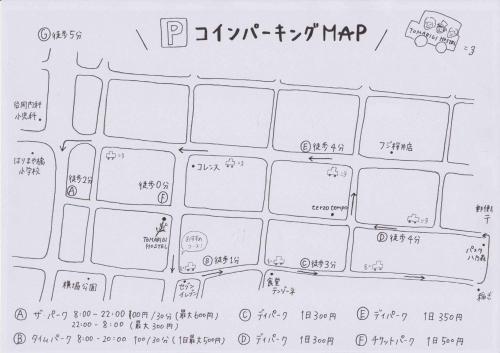 Ⓖ徒歩5分
P コインパーキングMAP
TOMARIGI HOSTEL
小児科
はりまや橋
小学校
徒歩2分
Ⓐ
徒歩0分
Ⓕ
コレンス
Ⓔ 徒歩4分
フジ桜井店
terzo tempo
TOMARIGI
HOSTEL
おすすめ
コース!
Ⓑ 徒歩1分
Ⓒ徒歩3分
Ⓓ 徒歩4分
横堀公園
セブン
イレブン
食堂
Ⓐ ザ・パーク 8:00-22:00 100円/30分(最大600円)
22:00-8:00 (最大300円)
Ⓑ タイムパーク 8:00-20:00 100/30分(1日最大500円)
Ⓒ デイパーク 1日300円
Ⓓ デイパーク 1日300円
Ⓔ デイパーク 1日350円
Ⓕ チケットパーク 1日500円